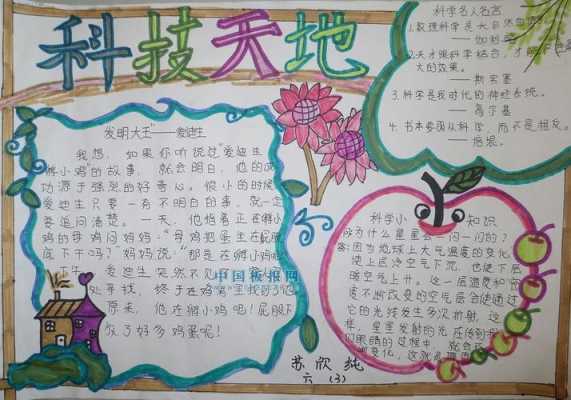 科技天地
科学名人名言
1.数理科学是大自然
——伽利略
2.天才跟科学结合,才能
大的效果。
——斯宾塞
3.科学是我时代的神经系统。
——高尔基
4.书本要跟从科学,而不是相反。
——培根。
发明大王"——爱迪生
我想,如果你听说过"爱迪生
孵小鸡"的故事,就会明白,他的成
功源于强烈的好奇心。很小的时候
爱迪生只要一有不明白的事,就一定
要追问清楚。一天,他指着正在孵小
鸡的母鸡问妈妈:"母鸡把蛋坐在屁股
底下干吗?"妈妈说:"那是在孵小鸡
下午,爱迪生突然不见
处寻找,终于在鸡窝里找到了他
原来,他在孵小鸡吧!屁股下
放了好多鸡蛋呢!
中国板报网
科学小知识
为什么星星会一闪一闪的?
答:因为地球上大气温度的变化
使上层冷空气下沉,也使下层
暖空气上升。这一层温度和密
度不断改变的空气层会使通过
它的光线发生多次折射,这
样,星星发射的光在传到
们眼睛的过程中,就会
变化,这就
苏欣纯
六(3)